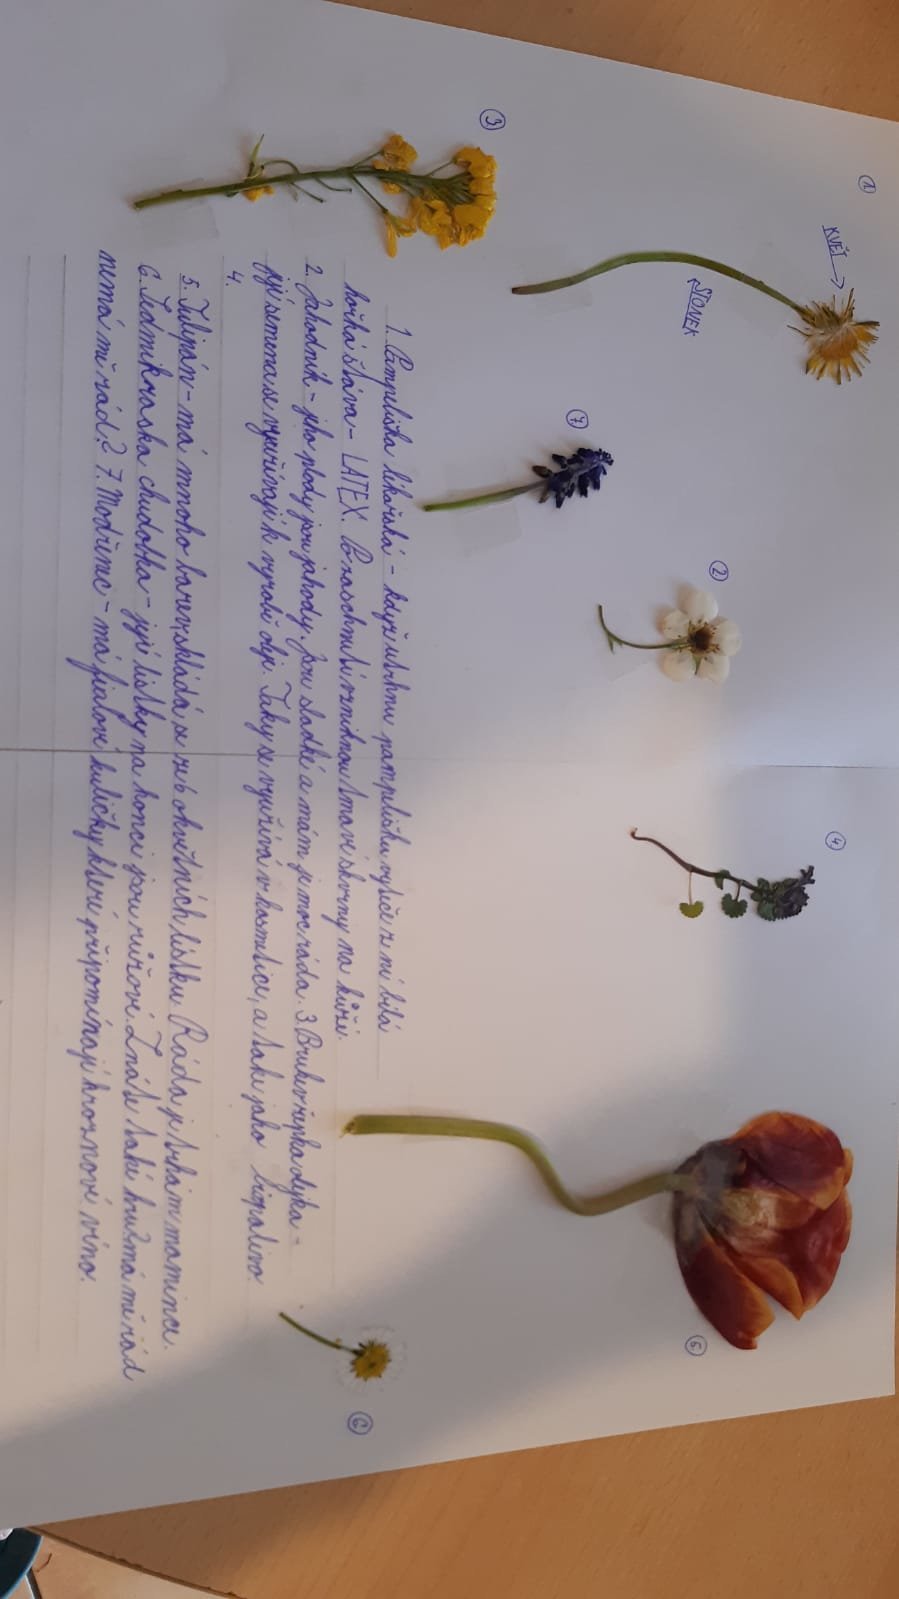 ①
KVĚT
STONEK
③
⑦
②
④
⑤
⑥
1. Pampeliška lékařská - když utrhnu pampelišku vyteče z ní bílá
hořká šťáva - LATEX. Po zaschnutí vzniknou tmavé skvrny na kůži.
2. Jahodník - jeho plody jsou jahody. Jsou sladké a mám je moc ráda. 3. Brukev řepka olejka -
její semena se využívají k výrobě oleje. Taky se využívá v kosmetice, a také jako biopalivo.
4.
5. Tulipán - má mnoho barev, skládá se ze 6 okvětních lístků. Ráda je trhám mamince.
6. Sedmikráska chudobka - její lístky na konci jsou růžové. Znáte také hru má mě rád
nemá mě rád? 7. Modřenec - má fialové kuličky které připomínají hroznové víno.